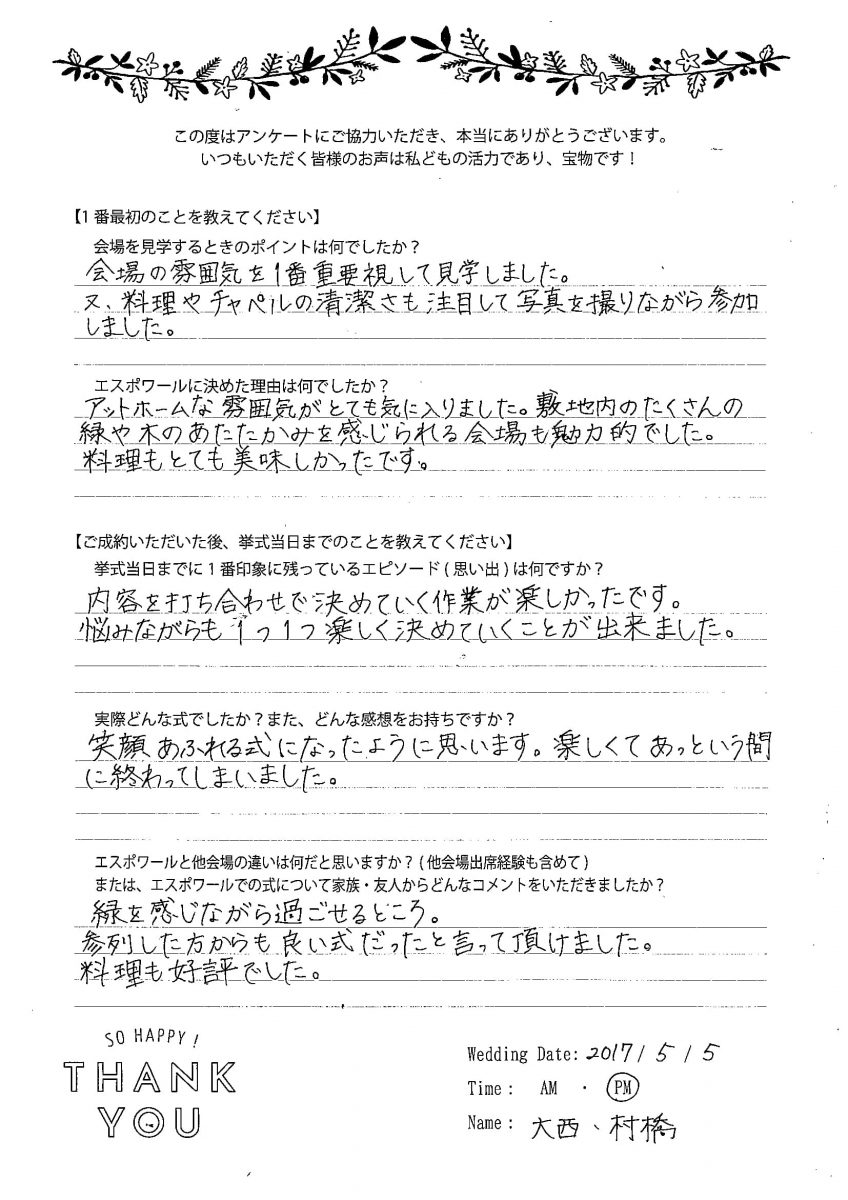 この度はアンケートにご協力いただき、本当にありがとうございます。
いつもいただく皆様のお声は私どもの活力であり、宝物です！
【1番最初のことを教えてください】
会場を見学するときのポイントは何でしたか？
会場の雰囲気を1番重要視して見学しました。
又、料理やチャペルの清潔さも注目して写真を撮りながら参加
しました。
エスポワールに決めた理由は何でしたか？
アットホームな雰囲気がとても気に入りました。敷地内のたくさんの
緑や木のあたたかみを感じられる会場も魅力的でした。
料理もとても美味しかったです。
【ご成約いただいた後、挙式当日までのことを教えてください】
挙式当日までに1番印象に残っているエピソード(思い出)は何ですか？
内容を打ち合わせで決めていく作業が楽しかったです。
悩みながらも1つ1つ楽しく決めていくことが出来ました。
実際どんな式でしたか？また、どんな感想をお持ちですか？
笑顔あふれる式になったように思います。楽しくてあっという間
に終わってしまいました。
エスポワールと他会場の違いは何だと思いますか？(他会場出席経験も含めて)
または、エスポワールでの式について家族・友人からどんなコメントをいただきましたか？
緑を感じながら過ごせるところ。
参列した方からも良い式だったと言って頂けました。
料理も好評でした。
SO HAPPY!
THANK
YOU
Wedding Date: 2017/5/5
Time: AM ・ PM
Name: 大西、村橋